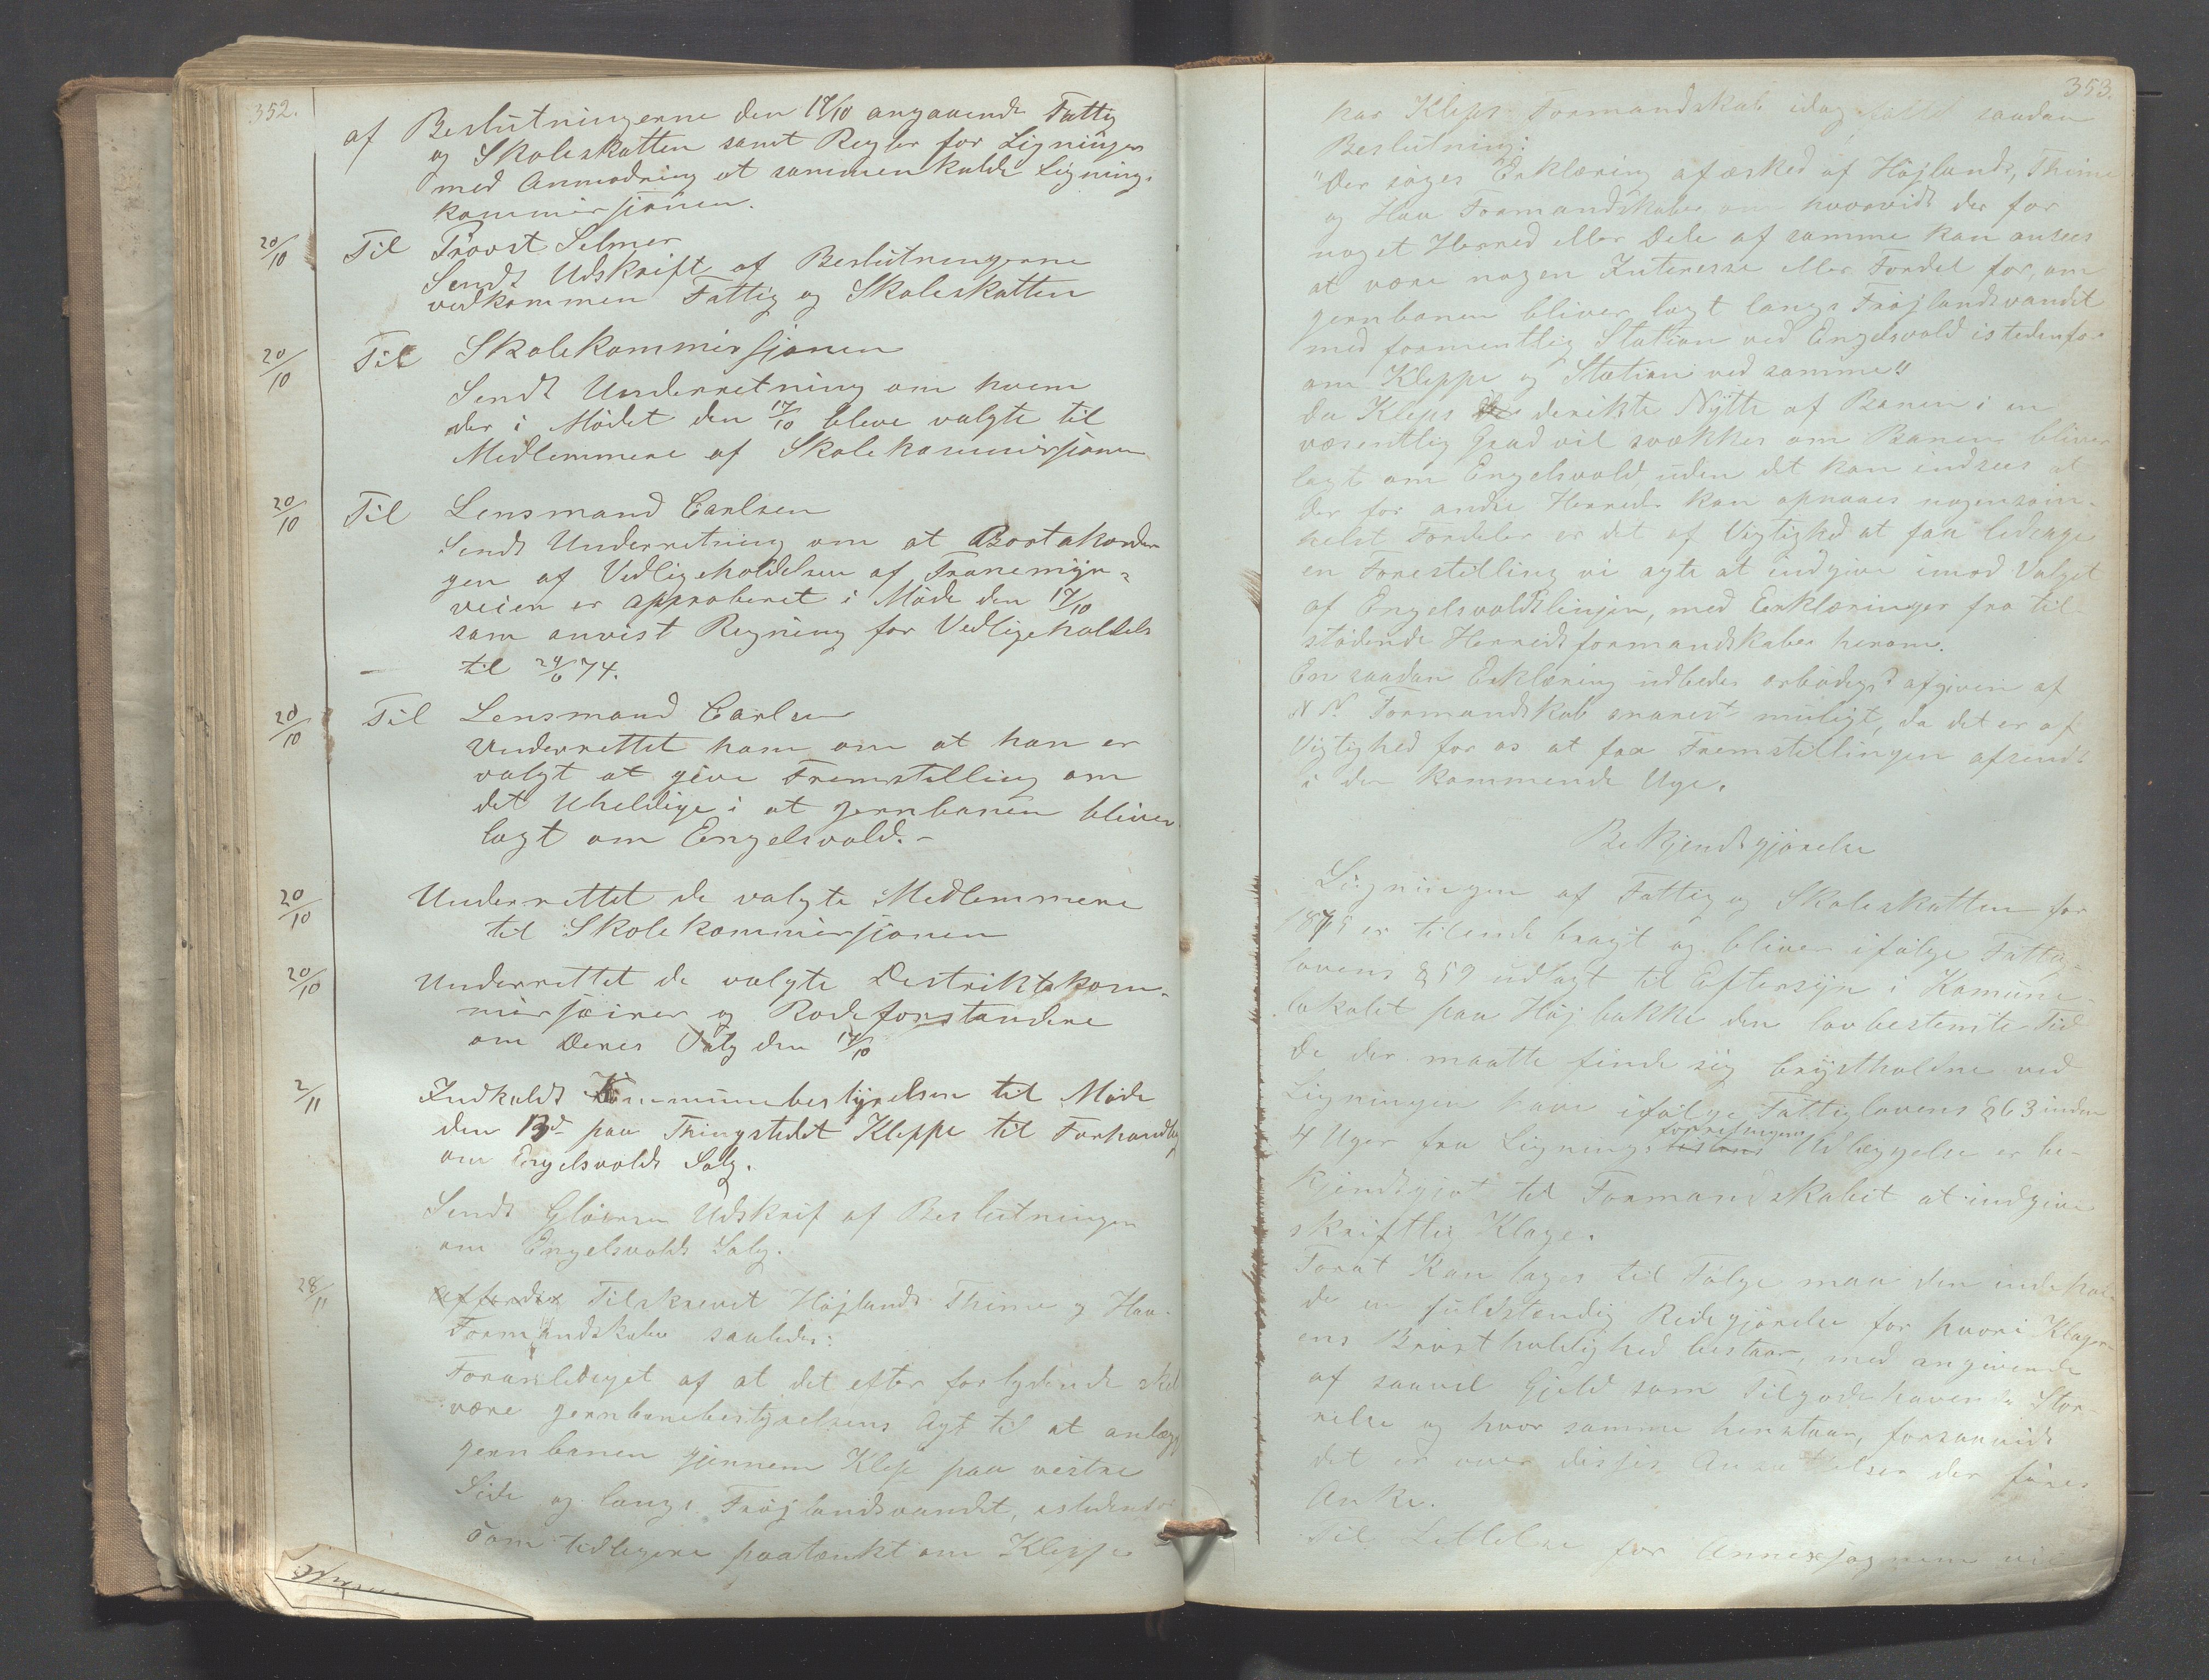 352.
af Beslutningerne den 17/10 angaaende Fattig
og Skoleskatten samt Regler for Ligningen
med Anmodning at sammenkalde Lignings
kommissjonen.
20/10 Til Provst Selmer
Sendt Udskrift af Beslutningerne
vedkommen Fattig og Skoleskatten
20/10 Til Skolekommissjonen
Sendt Underretning om hvem
der i Mødet den 17/10 bleve valgte til
Medlemmene af Skolekommissjonen
20/10 Til Lensmand Carlsen
Sendt Underretning om at Bortakorder
gen af Vedligeholdelsen af Tranemyr=
veien er approberet i Møde den 17/10
sam anvist Regning for Vedligeholdels
til 24/6 74.
20/10 Til Lensmand Carlsen
Underrettet ham om at han er
valgt at give Fremstilling om
det Uheldige i at jernbanen bliver
lagt om Engelsvold. -
20/10 Underrettet de valgte Medlemmene
til Skolekommissjonen
20/10 Underrettet de valgte Destriktskom-
missjoner og Rodeforstandere
om Deres Valg den 17/10
2/11 Indkaldt Kommunebestyrelsen til Møde
den 13d paa Thingstedet Kleppe til Forhandlg
om Engelsvolds Salg.
Sendt Gløersen Udskrif af Beslutningen
om Engelsvolds Salg.
28/11 Tilskrevet Højlands Thime og Haa-
Formandskaber saaledes:
Foranlediget af at det efter forlydende skal
være jernbanebestyrelsens Agt til at anlægg
jernbanen gjennem Klep paa vestre
Side og langs Frøjlandsvandet, istedenfor
som tidligere paatænkt om Kleppe
353.
har Kleps Formandskab idag fattet saadan
Beslutning:
"Der søges Erklæring afæsked af Højlands, Thime
og Haa Formandskaber om hvorvidt der for
noget Herred eller Dele af samme kan ansees
at være nogen Interesse eller Fordel for, om
jernbanen bliver lagt langs Frøjlandsvandet
med formentlig Station ved Engelsvold istedenfor
om Kleppe og Station ved samme"
Da Kleps derikte Nytte af Banen i en
væsentlig Grad vil svækkes om Banen bliver
lagt om Engelsvold, uden det kan indsees at
der for andre Herreder kan opnaaes nogensom-
helst Fordeler er det af Vigtighed at faa ledsage
en Forestilling vi agte at indgive imod Valget
af Engelsvoldslinjen, med Erklæringer fra til-
stødende Herredsformandskaber herom.
En saadan Erklæring udbedes ærbødigst afgiven af
N N. Formandskab snarest muligt, da det er af
Vigtighed for os at faa Fremstillingen afsendt
i den kommende Uge.
Bekjendtgjørelse
Ligningen af Fattig og Skoleskatten for
1875 er tilende bragt og bliver ifølge Fattig=
lovens § 59 udlagt til Eftersyn i Komune-
lokalet paa Højbakke den lovbestemte Tid
De der maatte finde sig brystholdne ved
Ligningen have ifølge Fattiglovens § 63 inden
4 Uger fra Lignings forretningens Udlæggelse er be-
kjendtgjot til Formandskabet at indgive
skriftlig Klage.
Forat kan tages til Følge maa den indehol
de en fuldstændig Redegjørelse for hvori Klager-
ens Brøstholdighed bestaar, med angivende
af saavel Gjeld som Tilgodehavende Stør-
relse og hvor samme henstaar, forsaavidt
det er over disses Ansættelser der føres
Anke.
Til Lettelse for Annexsognene vil